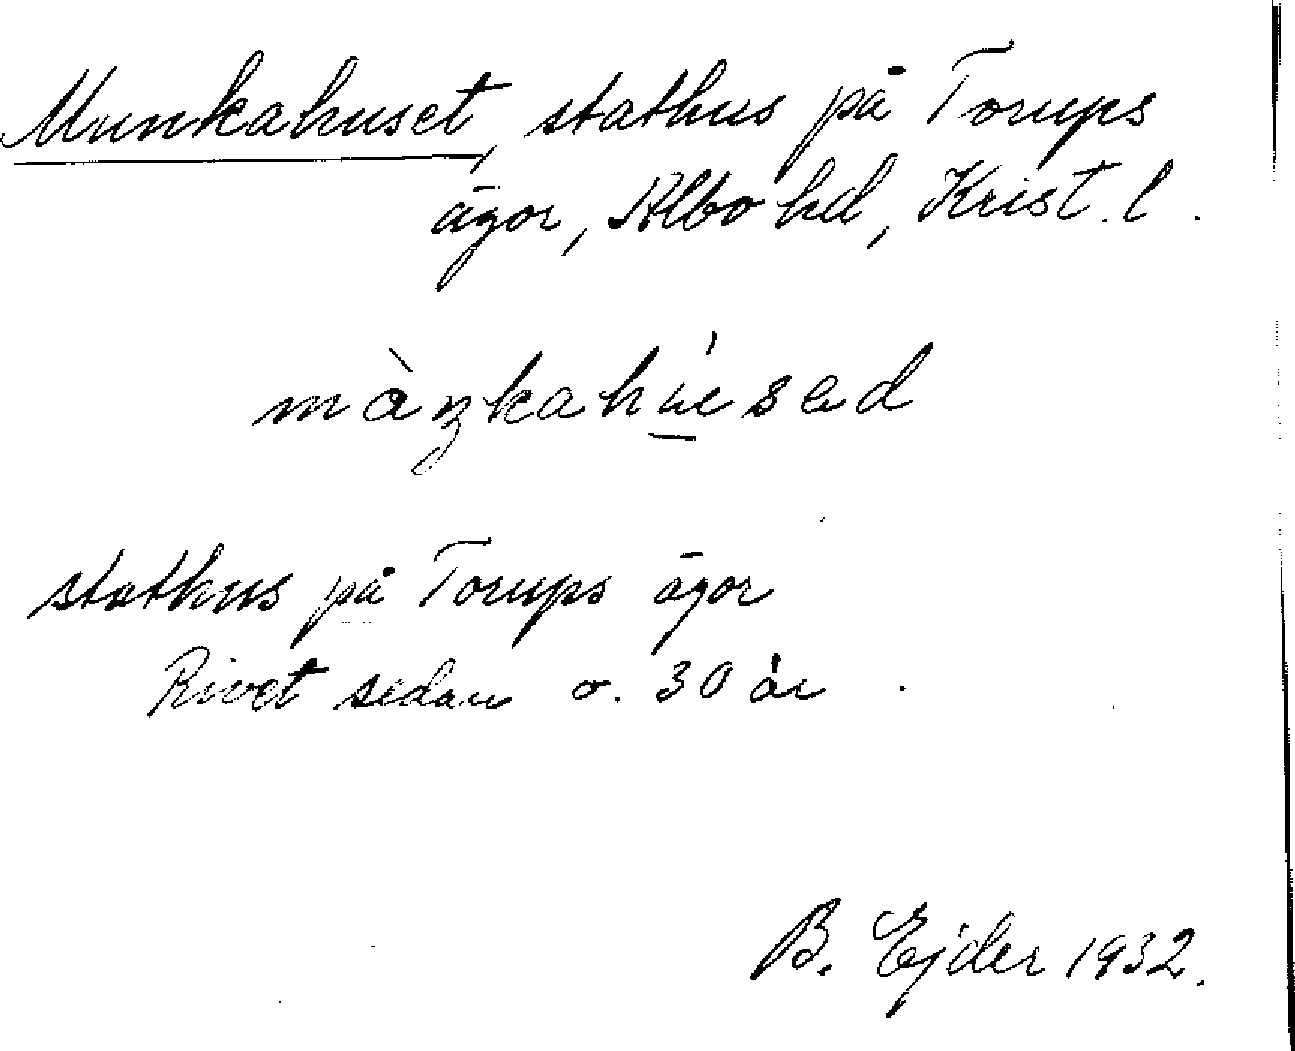 Munkahuset, stathus på Torups
ägor, Albo hd, Krist. l.
màŋkahúsed
stathus på Torups ägor
Rivet sedan o. 30 år.
B. Ejder 1932.